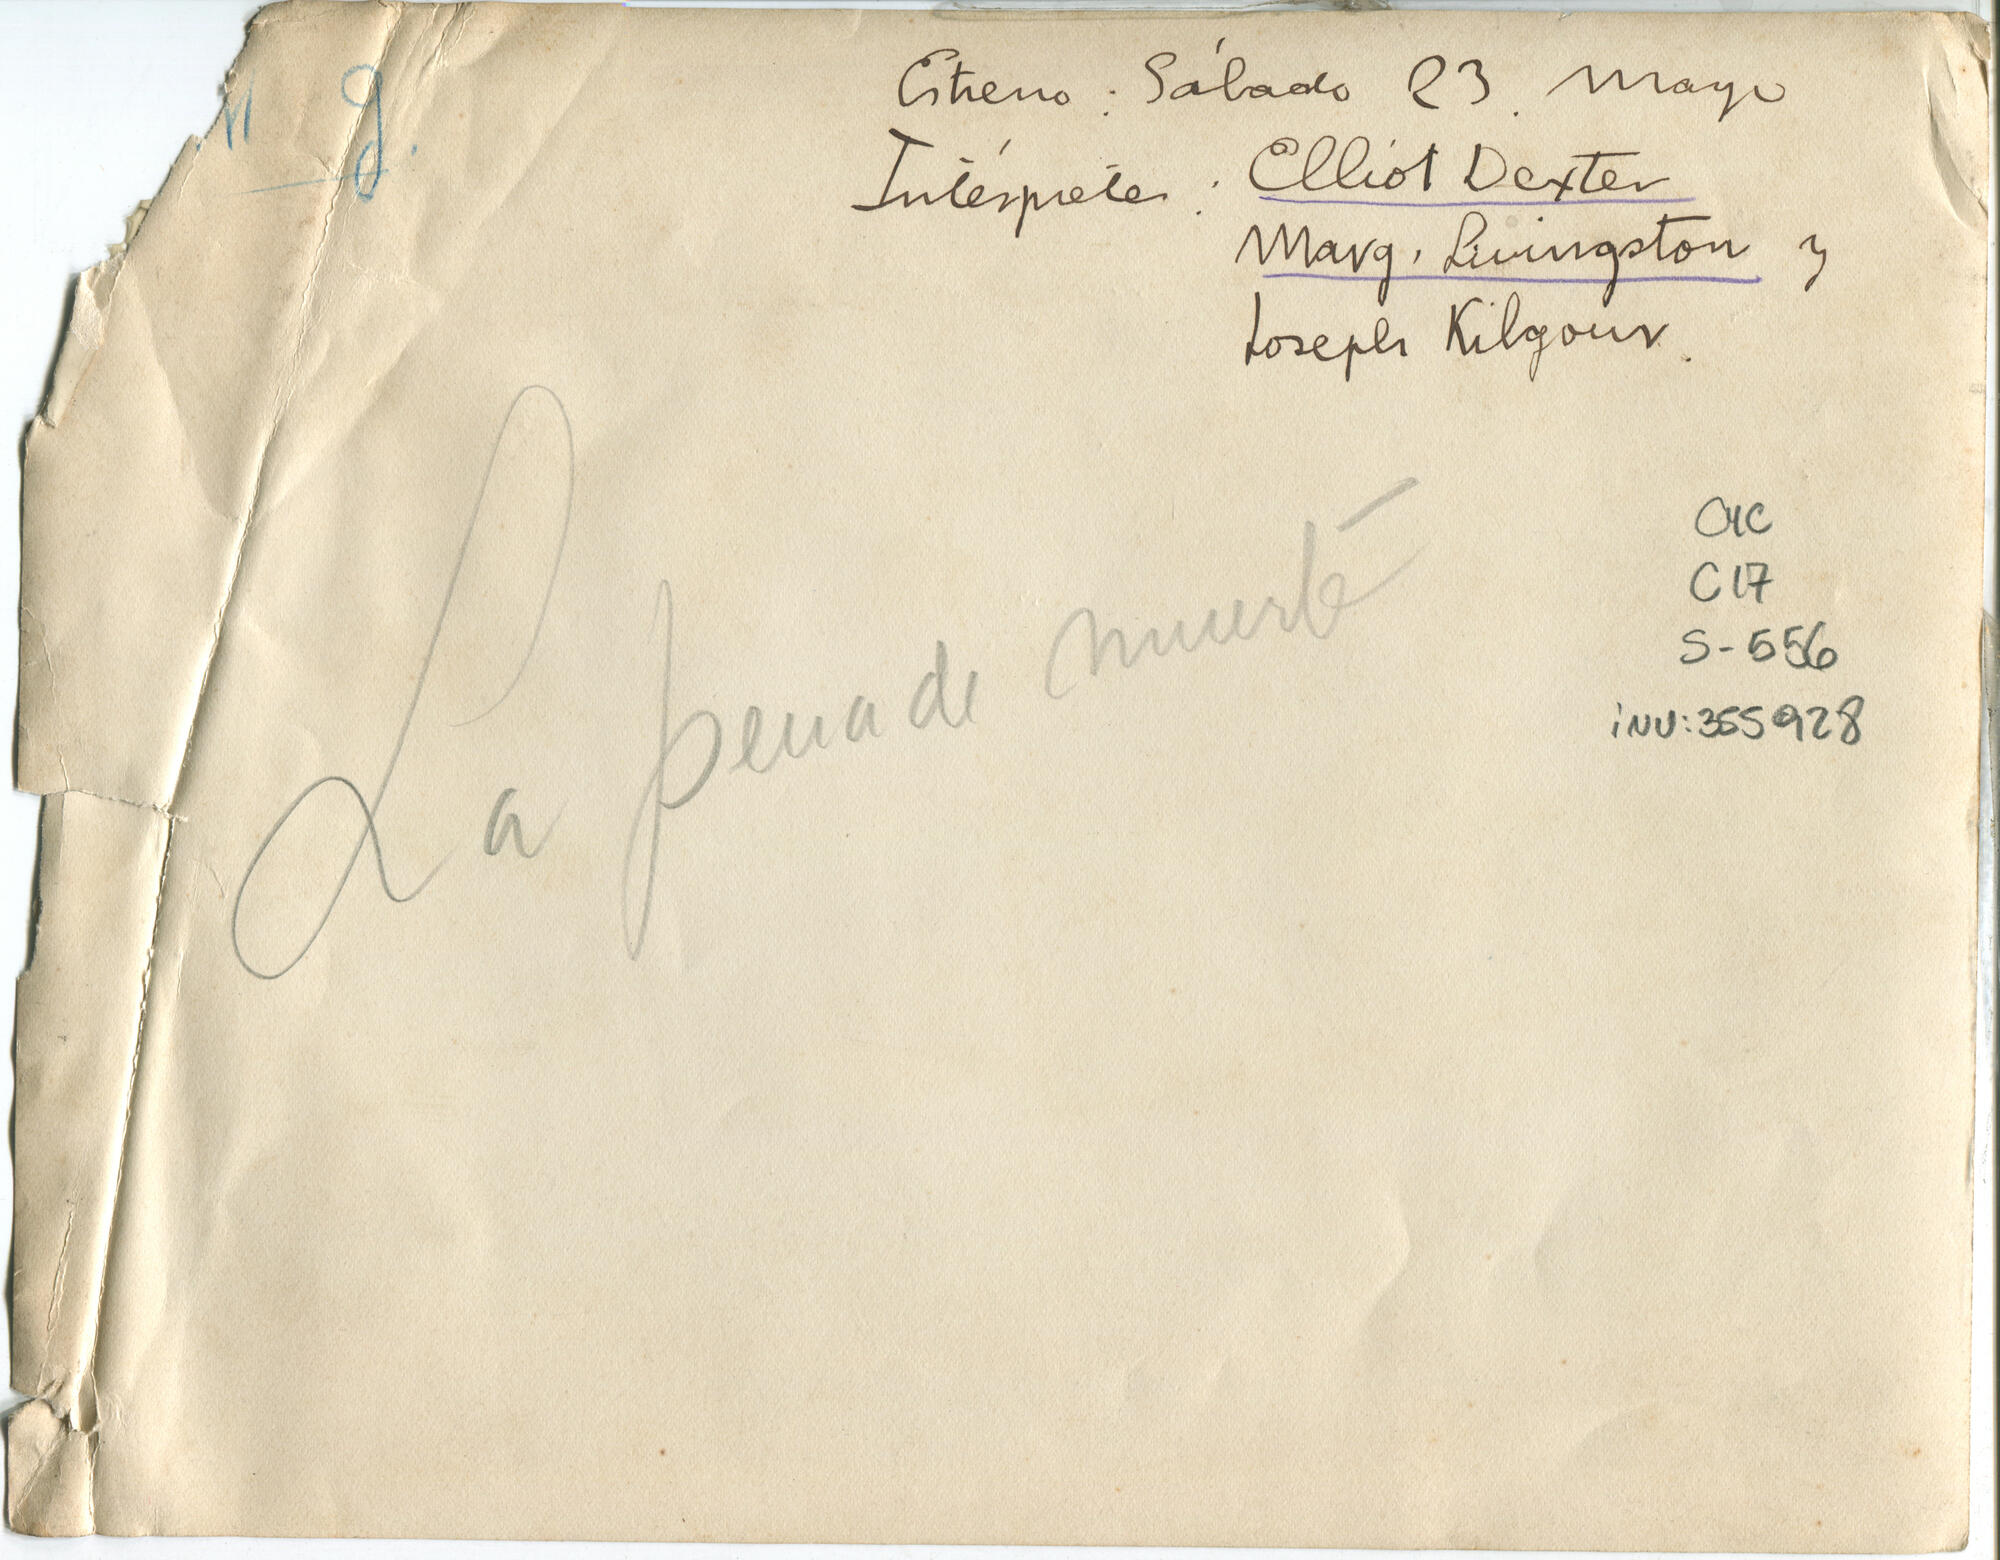 Estreno : Sábado 23. Mayo
Intérpretes : Elliot Dexter
Marg. Livingston y
Joseph Kilgour.
La pena de muerte
C17
S-556
inv: 355928